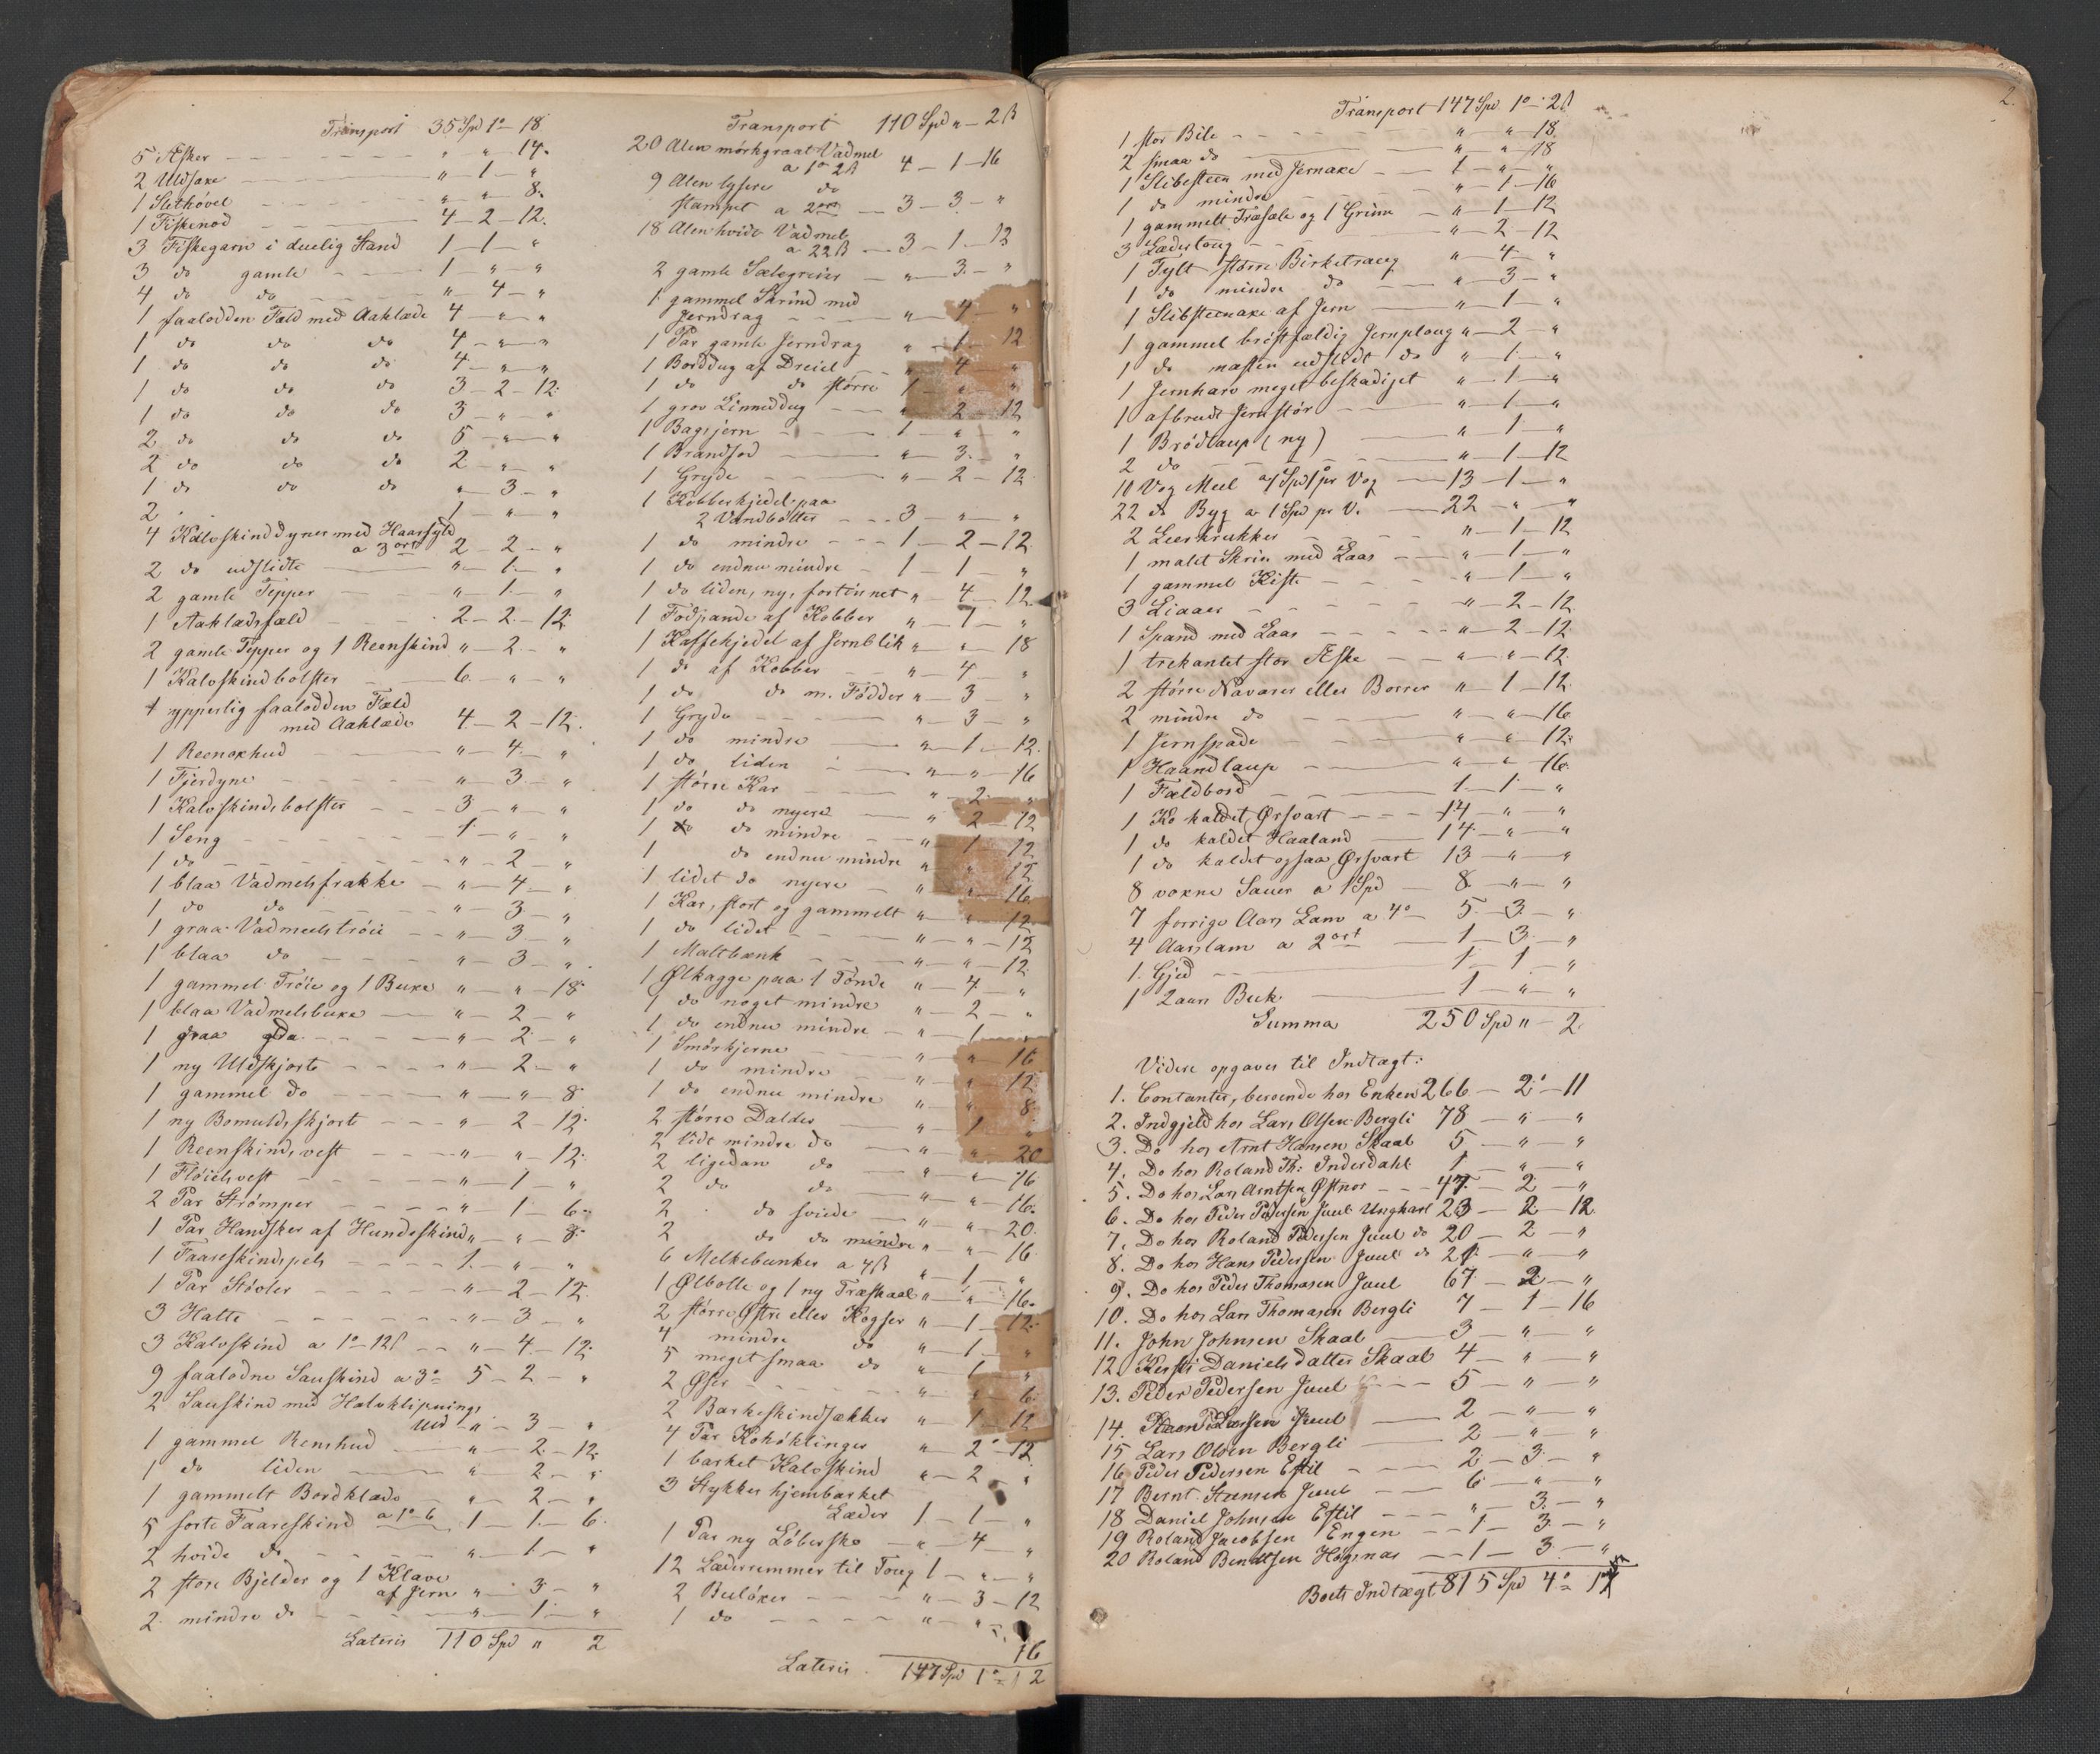 Transport 35 Spd 1º - 18
5 Æsker - - - - " - " - 14
2 Uldsaxe " - 1 - "
1 Slethövel - - - " - " - 8
1 Fiskenod 4 - 2 - 12
3 Fiskegarn i duelig Stand 1 - 1 - "
3 do gamle - - - 1 - " - "
4 do do - - - " - 4 - "
1 faalodden Fæld med Aaklæde 4 - " - "
1 do do do 4 - " - "
1 do do do 4 - " - "
1 do do do 3 - 2 - 12
1 do do do 3 - " - "
2 do do do 5 - " - "
2 do do do 2 - " - "
1 do do do " - 3 - "
2 1 - " - "
4 Kalvskinddyner med Haarfyld
a 3 ort 2 - 2 - "
2 do udslidte " - 1 - "
2 gamle Tepper - - " - 1 - "
1 Aaklædsfæld - - - 2 - 2 - 12
2 gamle Tepper og 1 Reenskind " - 2 - "
1 Kalvskindbolster 6 - " - "
1 ypperlig faalodden Fæld
med Aaklæde 4 - 2 - 12
1 Reenoxhud " - 4 - "
1 Fjerdyne - - - - " - 3 - "
1 Kalvskindsbolster - - 3 - " - "
1 Seng - - - - 1 - " - "
1 do - - - - " - 2 - "
1 blaa Vadmelsfrakke - " - 4 - "
1 do do - - - " - 3 - "
1 graa Vadmelströie - - " - 3 - "
1 blaa do - - - - " - 3 - "
1 gammel Tröie og 1 Buxe " - " - 18
1 blaa Vadmelsbuxe " - 2 - "
1 graa do - - - " - 2 - "
1 ny Uldskjorte - - - - " - 2 - "
1 gammel do - - - - " - " - 8
1 ny Bomuldsskjorte - - - " - 2 - 12
1 Reenskindsvest - - - - " - " - 12
1 Flöielsvest - - - - - " - 1 - "
2 Par Strømper - - - - " - 1 - 6
1 Par Handsker af Hundeskind " - " - 8
1 Faareskindspels - - - - 1 - " - "
1 Par Støvler - - - - - " - 2 - 12
3 Hatte - - - - - " - 3 - "
3 Kalvskind a 1º 12ß - - " - 4 - 12
9 faalodne Sauskind a 3º 5 - 2 - "
2 Sauskind med Halvklipnings
Uld - " - 3 - "
1 gammel Renshud " - 2 - 12
1 do liden " - 2 - "
1 gammelt Bordklæde " - 2 - "
5 sorte Faareskind a 1º 6 1 - 1 - 6
2 hvide do - - - - " - 1 - "
2 store Bjelder og 1 Klave
af Jern " - 3 - "
2 mindre do - - - " - 1 - "
Lateris 110 Spd " 2
Transport 110 Spd " - 2ß
20 Alen mörkgraat Vadmel
a 1º 2ß 4 - 1 - 16
9 Alen lysere do
stampet a 2 ort 3 - 3 - "
18 Alen hvidt Vadmel
a 22ß 3 - 1 - 12
2 gamle Sælegreier " - 3 - "
1 gammel Skrind med
Jerndrag - - - " - 4 - "
1 Par gamle Jerndrag " - 1 - 12
1 Borddug af Dreiel - - " - 4 - "
1 do do större 1 - " - "
1 grov Linneddug - - " - 2 - 12
1 Bagsjern - - - - 1 - " - "
1 Brandsod " - 3 - "
1 Gryde - - - " - 2 - 12
1 Kobberkjedel paa
2 Vandbötter - - - 3 - " - "
1 do mindre - - - 1 - 2 - 12
1 do endnu mindre - 1 - 1 - "
1 do liden, ny, fortinnet " - 4 - 12
1 Fodpande af Kobber " - 1 - "
1 Kaffekjedel af Jernblik " - " - 18
1 do af Kobber " - 4 - "
1 do do m. Födder " - 3 - "
1 Gryde - - - - " - 3 - "
1 do mindre " - 1 - 12
1 do liden - " - " - 16
1 större Kar - - - " - 2 - "
1 do do nyere " - 2 - 12
1 do do mindre - - " - 1 - 12
1 do endnu mindre " - " - 12
1 lidet do nyere - " - " - 16
1 Kar, stort og gammelt " - " - 12
1 do lidet - - - " - " - 12
1 Maltbænk - - - " - " - 12
1 Ølkagge paa 1 Tönde " - 4 - "
1 do noget mindre " - 2 - "
1 do endnu mindre - " - 1 - "
1 Smörkjerne " - " - 16
1 do mindre - - " - " - 12
1 do endnu mindre " - " - 8
2 större Dalder " - 1 - "
2 lidt mindre do " - " - 20
2 ligedan do " - " - 16
2 do do " - " - 16
2 do sviede " - " - 20
2 do do mindre " - " - 16
6 Melkebunker a 4ß " - 1 - "
1 Ølbolle og 1 ny Træskaal " - " - 16
2 större Østre eller Kogser " - 1 - 12
4 mindre do " - 1 - "
5 meget smaa do " - 1 - "
2 Øser - - - - " - " - 6
2 Barkeskindsækker " - 1 - 12
4 Par Kohöklinger " - 2 - 12
1 barket Kalvskind " - 2 - "
3 Stykker hjembarket
Læder 1 - 1 - "
1 Par ny Löbersko " - 4 - "
12 Læderremmer til Toug 1 - " - "
2 Bulöxer - - - " - 3 - 12
1 do - - - - " - " -
16
Lateris 147 Spd 1º 12
2.
Transport 147 Spd 1º 2ß
1 stor Bile - - - - " - " - 18
2 smaa do " - " - 18
1 Slibesteen med Jernaxe - - 1 - " - "
1 do mindre " - 1 - 16
1 gammelt Træsæle og 1 Grime - " - 1 - 12
3 Lædertoug - - - - " - 2 - 12
1 Tylt större Birketræer " - 4 - "
1 do mindre do - - " - 3 - "
1 Slibsteenaxe af Jern " - 1 - "
1 gammel bröstfældig Jernploug " - 2 - "
1 do næsten udslidt do " - 1 - "
1 Jernharv meget beskadiget " - 1 - "
1 afbrudt Jernstör " - 1 - "
1 Brödlaup (ny) " - 1 - "
2 do - - - - " - 1 - 12
10 Vog Meel a 1 Spd 1º pr Vog 13 - 1 - "
22 do Byg a 1 Spd pr V. 22 - " - "
2 Leerkrukker - - - " - 1 - 12
1 malet Skrin med Laas - - " - 1 - "
1 gammel Kiste - - - - " - 1 - "
3 Liaaer - - - - - " - 2 - 12
1 Spand med Laas - - - - " - 2 - 12
1 trekantet stor Æske - - " - " - 12
2 större Navarer eller Borrer " - 1 - 12
2 mindre do - - - " - " - 16
1 Jernspade - - - " - " - 12
1 Haandlaup - " - " - 16
1 Fældbord - - - 1 - 1 - "
1 Ko kaldet Ørsvart - - - 14 - " - "
1 do kaldet Haaland 14 - " - "
1 do kaldet ogsaa Ørsvart 13 - " - "
8 voxne Sauer a 1 Spd 8 - " - "
7 forrige Aars Lam a 4º 5 - 3 - "
4 Aarslam a 2 ort 1 - 3 - "
1 Gjed - - 1 - 1 - "
1 2aars Buk 1 - " - "
Summa 250 Spd " - 2
Videre opgaves til Indtægt:
1. Contanter, beroende hos Enken 266 - 2º - 11
2. Indgjeld hos Lars Olsen Bergli 78 - " - "
3. Do hos Arnt Hansen Skaal 5 - " - "
4. Do hos Roland Th: Inderdahl 1 - " - "
5. Do hos Lars Arntsen Østnor - - - 47 - 2 - "
6. Do hos Peder Pedersen Juul Ungkarl 23 - 2 - 12
7. Do hos Roland Pedersen Juul do 20 - 2 - "
8. Do hos Hans Pedersen Juul do 21 - " - "
9. Do hos Peder Thomasen Juul 67 - 2 - "
10. Do hos Lars Thomasen Bergli 7 - 1 - 16
11. John Johnsen Skaal 3 - " - "
12. Kersti Danielsdatter Skaal 4 - " - "
13. Peder Pedersen Juul - - - 5 - " - "
14. Larssen Juul 2 - " - "
15 Lars Olsen Bergli 2 - " - "
16 Peder Pedersen Estil - - - 2 - 3 - "
17 Bernt Juul - - 6 - " - "
18 Daniel Johnsen Estil - - - " - 3 - "
19 Roland Jacobsen Engen - - 1 - 3 - "
20 Roland Bendtsen Høgsnas - - 1 - 3 - "
Boets Indtægt 815 Spd 4º 17